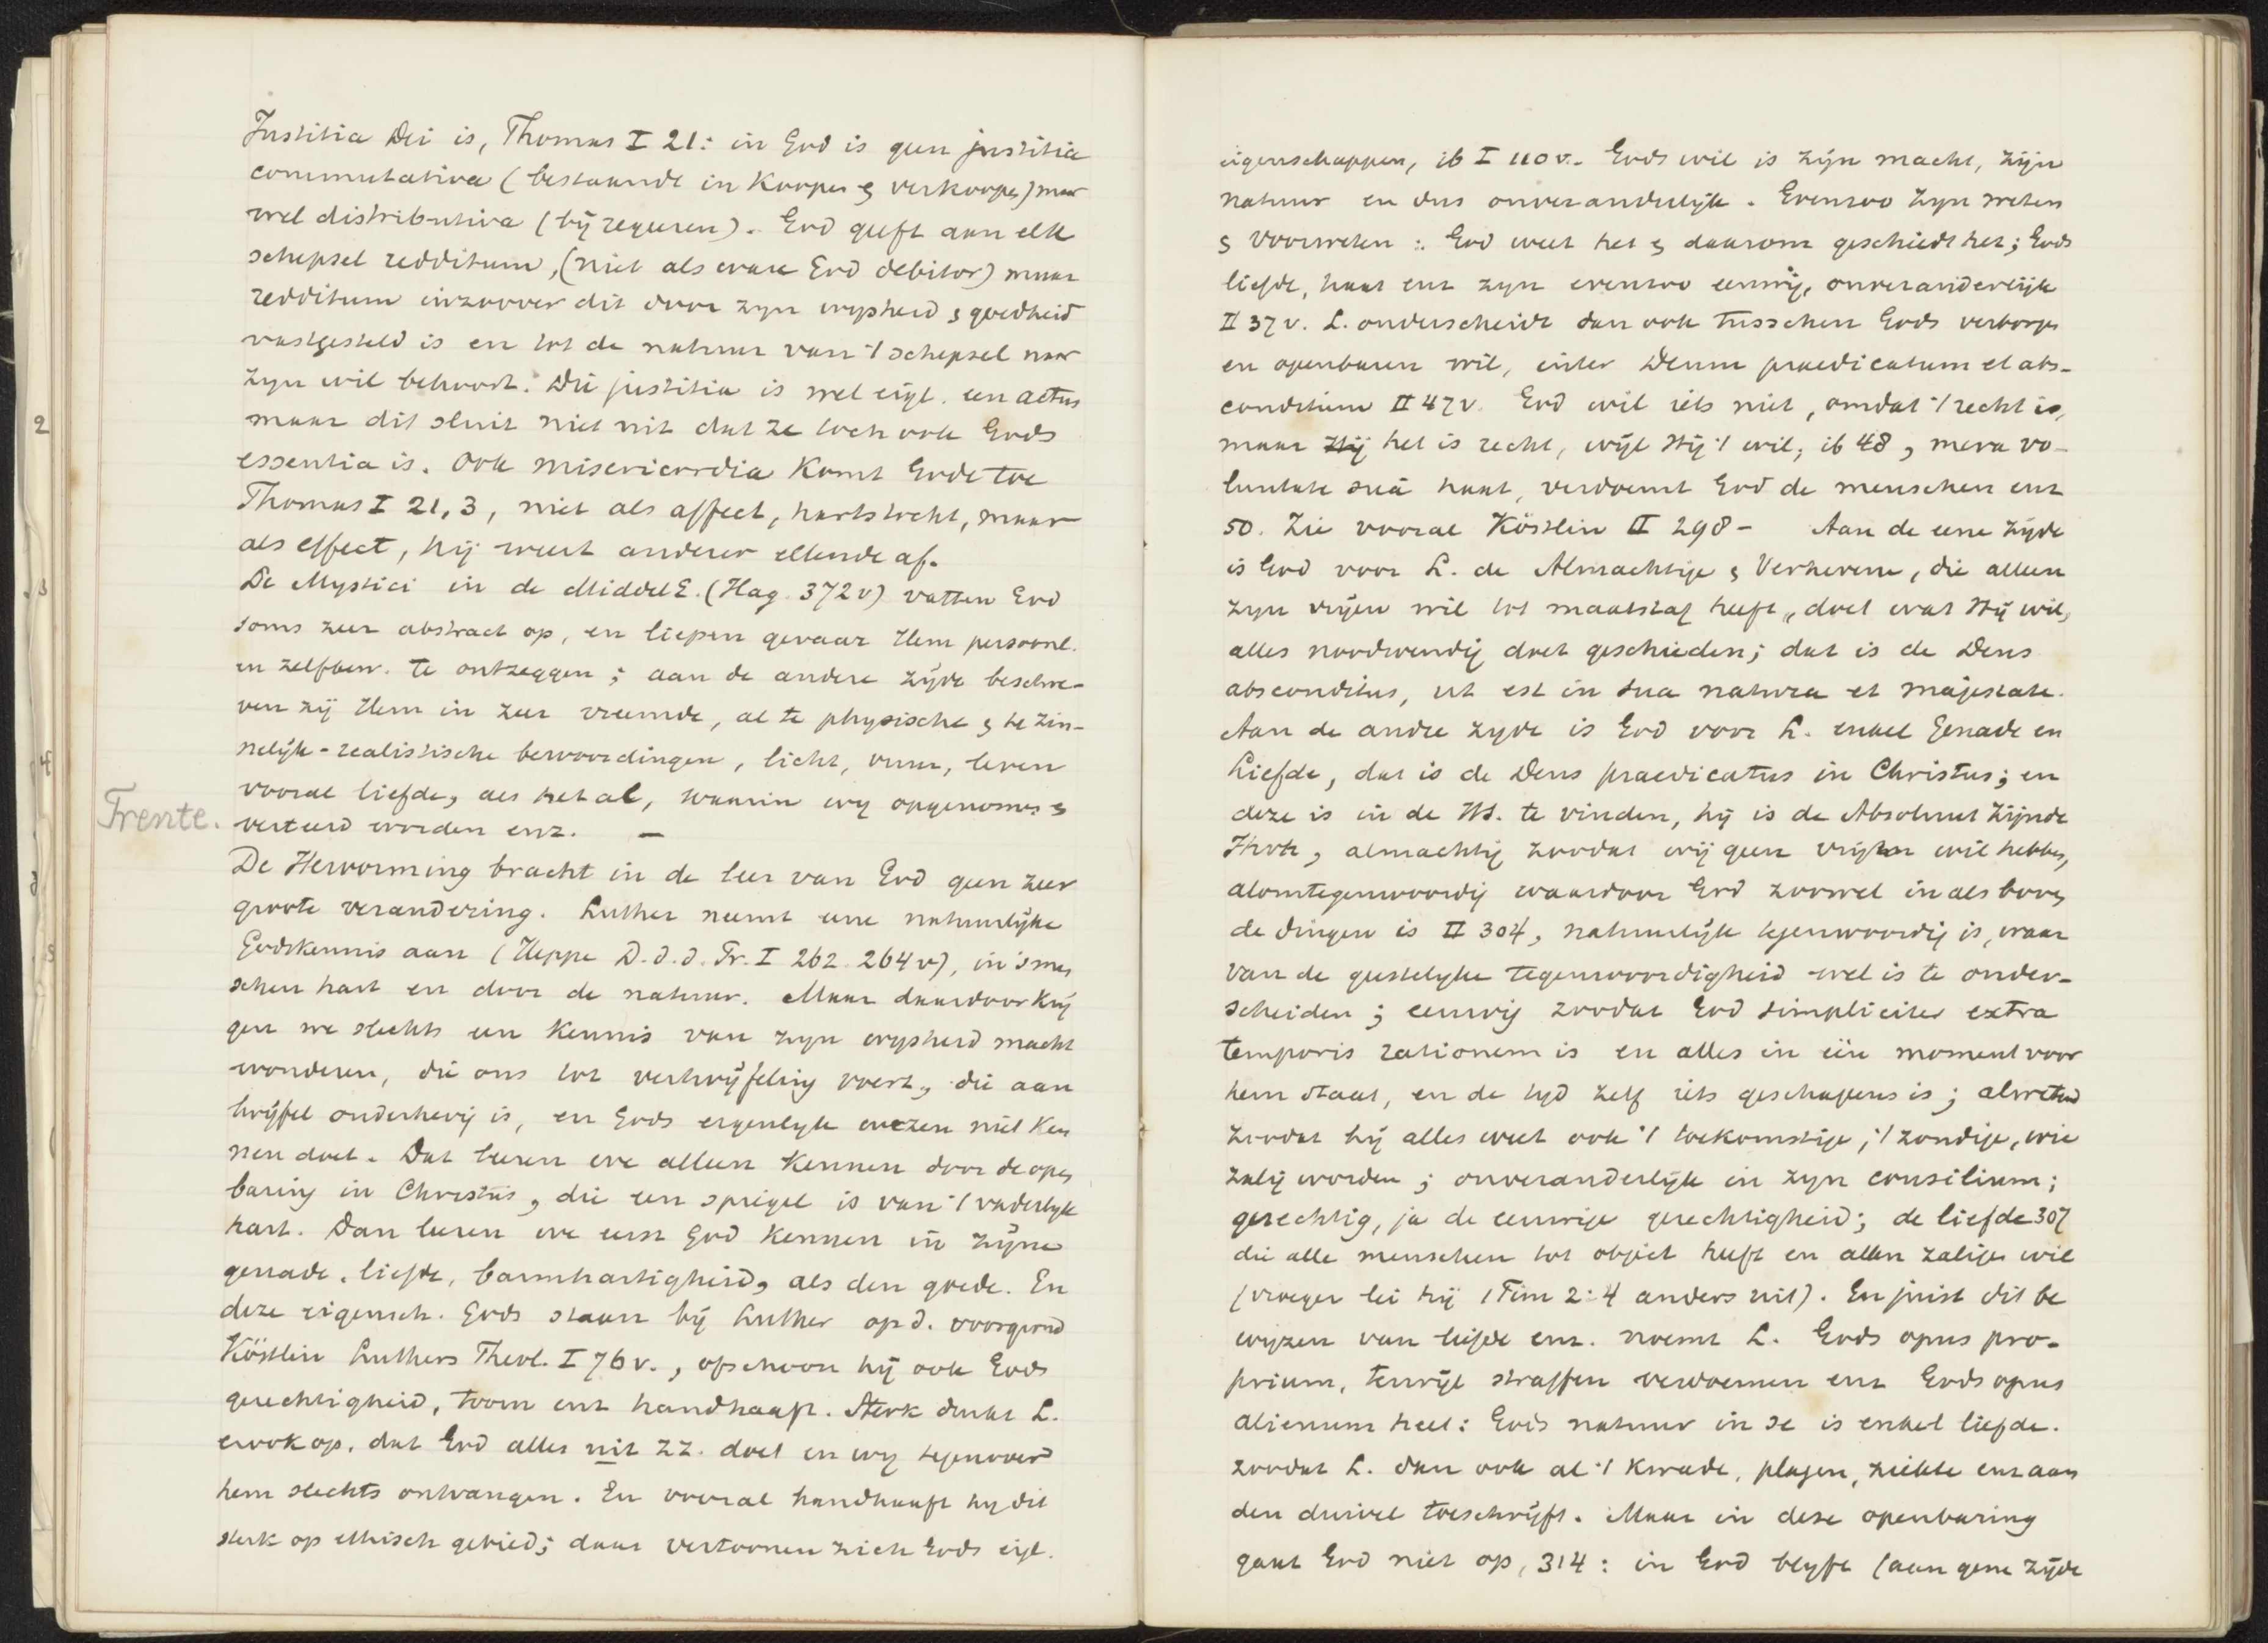 Justitia Dei is, Thomas I 21: in God is geen justitia
commutativa (bestaande in koopen & verkoopen) maar
wel distributiva (bij regeeren). God geeft aan elk
schepsel redditum, (niet als ware God debitor) maar
redditum inzoover dit door zyn wysheid & goedheid
vastgesteld is en tot de natuur van 't schepsel naar
zyn wil behoort. Die justitia is wel eigl. een actus
maar dit sluit niet uit dat ze toch ook Gods
essentia is. Ook misericordia komt Gode toe
Thomas I 21,3, niet als affect, hartstocht, maar
als effect, hij weert anderer ellende af.
De Mystici in de MiddelE. (Hag. 372v) vatten God
soms zeer abstract op, en liepen gevaar Hem persoonl.
en zelfbew. te ontzeggen; aan de andere zijde beschre-
ven zij Hem in zeer vreemde, al te physische & te zin-
nelijk-realistische bewoordingen, licht, vuur, leven
vooral liefde, als het al, waarin wy opgenomen &
verteerd worden enz. —
Trente.
De Hervorming bracht in de leer van God geen zeer
groote verandering. Luther neemt eene natuurlijke
Godskennis aan (Heppe D. d. d. Pr. I 262. 264v), in 's men
schen hart en door de natuur. Maar daardoor krij
gen we slechts een kennis van zyn wysheid macht
wonderen, die ons tot vertwijfeling voert, die aan
twijfel onderhevig is, en Gods eigenlyk wezen niet ken
nen doet. Dat leeren we alleen kennen door de open
baring in Christus, die een spiegel is van 't vaderlyk
hart. Dan leeren we eerst God kennen in zijne
genade, liefde, barmhartigheid, als den goede. En
deze eigensch. Gods staan bij Luther op d. voorgrond
Köstlin Luthers Theol. I 76v., ofschoon hij ook Gods
gerechtigheid, toorn enz handhaaft. Sterk drukt L.
er ook op, dat God alles uit ZZ. doet en wy tegenover
hem slechts ontvangen. En vooral handhaaft hy dit
sterk op ethisch gebied; daar vertoonen zich Gods eigl.
eigenschappen, ib I 110v. Gods wil is zijn macht, zijn
natuur en dus onveranderlijk. Evenzoo zyn weten
& voorweten: God weet het & daarom geschiedt het; Gods
liefde, haat enz zyn evenzoo eeuwig, onveranderlijk
II 37v. L. onderscheidt dan ook tusschen Gods verborgen
en openbaren wil, inter Deum praedicatum et abs-
conditum II 47v. God wil iets niet, omdat 't recht is,
maar Hij het is recht, wijl Hij 't wil, ib 48, mera vo-
luntate suâ haat, verdoemt God de menschen enz
50. Zie vooral Köstlin II 298- Aan de eene zijde
is God voor L. de Almachtige & Verhevene, die alleen
zyn vrijen wil tot maatstaf heeft, doet wat Hij wil,
alles noodwendig doet geschieden; dat is de Deus
absconditus, ut est in sua natura et majestate.
Aan de andre zyde is God voor L. enkel Genade en
Liefde, dat is de Deus praedicatus in Christus; en
deze is in de HS. te vinden, hij is de Absoluut Zijnde
almachtig zoodat wij geen vrijen wil hebben,
alomtegenwoordig waardoor God zoowel in als boven
de dingen is II 304, natuurlijk tegenwoordig is, waar
van de geestelyke tegenwoordigheid wel is te onder-
scheiden; eeuwig zoodat God simpliciter extra
temporis rationem is en alles in één moment voor
hem staat, en de tyd zelf iets geschapens is; alwetend
zoodat hij alles weet ook 't toekomstige, 't zondige, wie
zalig worden; onveranderlijk in zyn consilium;
gerechtig, ja de eeuwige gerechtigheid; de liefde 307
die alle menschen tot object heeft en allen zaligen wil
(vroeger lei hij 1 Tim 2:4 anders uit). En juist dit be
wijzen van liefde enz. noemt L. Gods opus pro-
prium, terwijl straffen verdoemen enz Gods opus
alienum heet: Gods natuur in se is enkel liefde.
zoodat L. dan ook al 't kwade, plagen, ziekte enz aan
den duivel toeschrijft. Maar in deze openbaring
gaat God niet op, 314: in God blyft (aan gene zijde